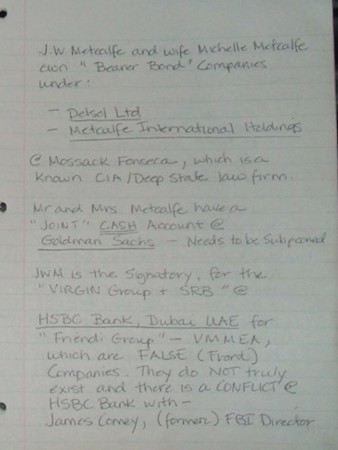 J.W. Metcalfe and wife Michelle Metcalfe
own "Bearer Bond" Companies
under:
- Delsol Ltd
- Metcalfe International Holdings
@ Mossack Fonseca, which is a
known CIA/Deep State law firm.
Mr and Mrs. Metcalfe have a
"JOINT" CASH Account @
Goldman Sachs - Needs to be Subpoened
JWM is the Signatory, for the
"VIRGIN Group + SRB" @
HSBC Bank, Dubai UAE for
"Friendi Group" - VMMEA,
which are FALSE (Front)
Companies. They do NOT truly
exist and there is a CONFLICT @
HSBC Bank with -
James Comey, (former) FBI Director